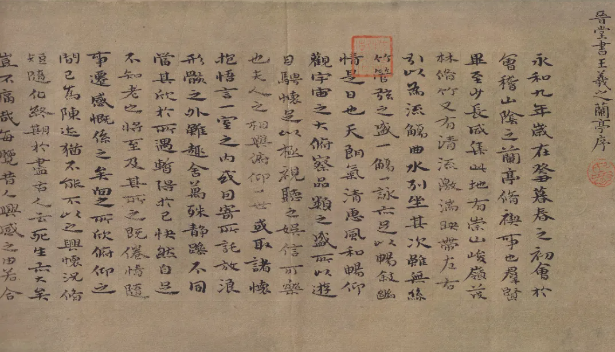 堂書王羲之蘭亭序
永和九年歲在癸丑暮春之初會於
會稽山陰之蘭亭脩禊事也羣賢
畢至少長咸集此地有崇山峻嶺茂
林脩竹又有清流激湍映帶左右
引以為流觴曲水列坐其次雖無絲
竹管弦之盛一觴一詠亦足以暢敘幽
情是日也天朗氣清惠風和暢仰
觀宇宙之大俯察品類之盛所以遊
目騁懷足以極視聽之娛信可樂
也夫人之相與俯仰一世或取諸懷
抱悟言一室之內或因寄所託放浪
形骸之外雖趣舍萬殊靜躁不同
當其欣於所遇暫得於己快然自足
不知老之將至及其所之既倦情隨
事遷感慨係之矣向之所欣俯仰之
間已為陳迹猶不能不以之興懷況脩
短隨化終期於盡古人云死生亦大矣
豈不痛哉每攬昔人興感之由若合